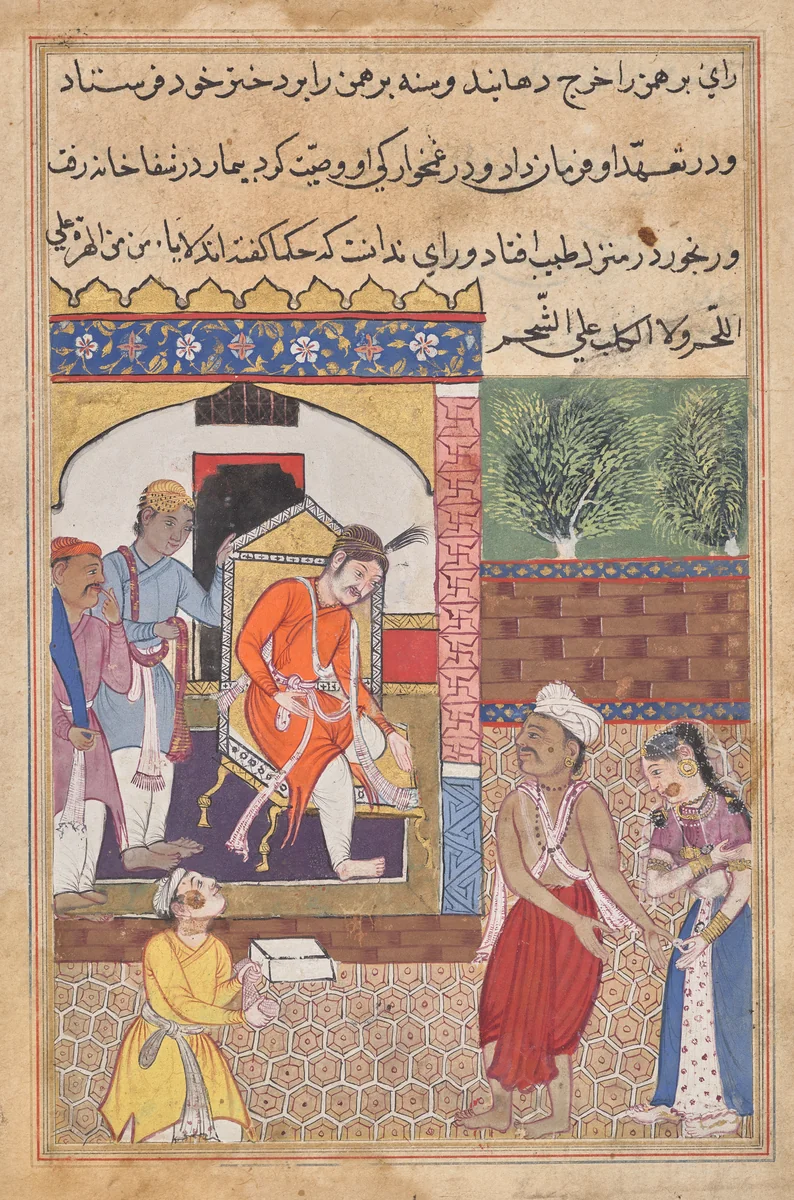 رای برهمن را خرج دهانید و سنه برهمن را بر دختر خود فرستاد
و در تعهّد او فرمان داد و در غمخوارکی او وصیّت کرد بیمار در شفا خانه رفت
و رنجور در منزل طبیب افتاد و رای ندانست که حکما کفته اند لا یا من من الهرّة علی
اللّحم ولا الکلب علی الشّحم